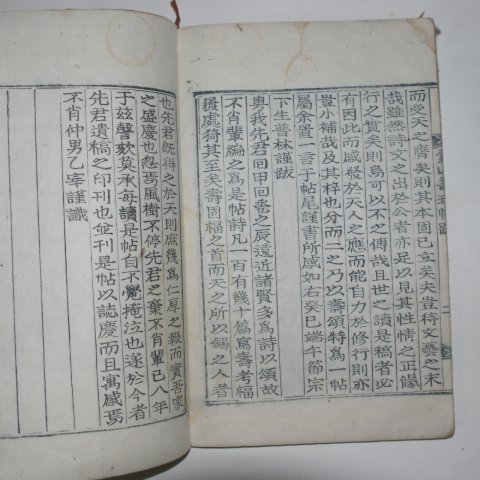 而受天之膺矣則其本固已立矣夫豈待文藝之末
哉雖然詩文之出於公者亦足以見其性情之正修
行之實矣則烏可以不之傳哉且世之讀是稿者必
有因此而感發於天人之應而能自力於修行則亦
豈小補哉及其梓也分而二之乃以壽頌特爲一帖
屬余置一言于帖尾謹書所感如右癸巳端午節宗
下生普林謹跋
奧我先君回甲晬盤之辰遠近諸賢多爲詩以頌故
不肖輩編之爲是帖詩凡一百有幾十篇焉壽考福
履處猗其至矣壽固福之首而天之所以錫之人者
也先君旣得之於天則庶幾爲仁厚之報而實吾家
之盛慶也忽焉風樹不停先君之棄不肖輩已八年
于玆謦欬莫承每讀是帖自不覺掩泣也遂於今者
先君遺稿之印刊也並刊是帖以誌慶而且寓感焉
不肖仲男乙宰謹識